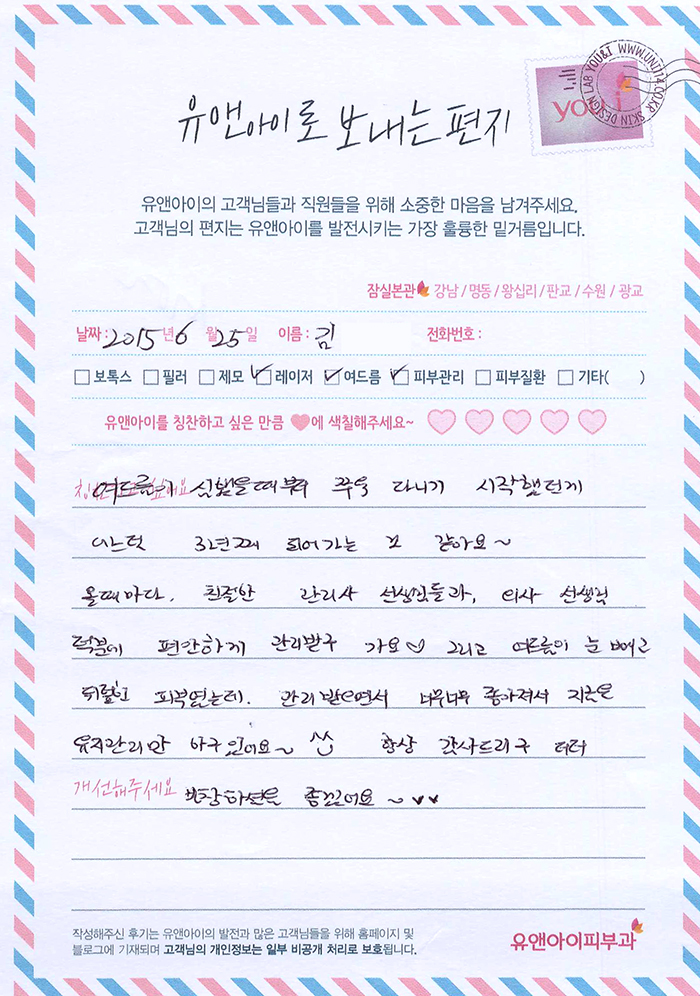 유앤아이로 보내는 편지
you i
SKIN DESIGN LAB YOU&I WWW.UNI114.CO.KR
유앤아이의 고객님들과 직원들을 위해 소중한 마음을 남겨주세요.
고객님의 편지는 유앤아이를 발전시키는 가장 훌륭한 밑거름입니다.
잠실본관 강남 / 명동 / 왕십리 / 판교 / 수원 / 광교
날짜 : 2015 년 6 월 25 일 이름 : 김 전화번호 :
보톡스 필러 제모 레이저 여드름 피부관리 피부질환 기타( )
유앤아이를 칭찬하고 싶은 만큼 에 색칠해주세요~
여드름이 심했을때부터 꾸욱 다니기 시작했던게
어느덧 3년째 되어가는 것 같아요~
올때마다. 친절한 관리사 선생님들과, 의사 선생님
덕분에 편안하게 관리받구 가요♡ 그리고 여드름이 눈 빼고
뒤덮힌 피부였는데. 관리 받으면서 너무너무 좋아져서 지금은
유지관리만 하구 있어요~ ^^ 항상 감사드리구 더더
개선해주세요 번창하셨음 좋겠어요~♥♥
작성해주신 후기는 유앤아이의 발전과 많은 고객님들을 위해 홈페이지 및
블로그에 기재되며 고객님의 개인정보는 일부 비공개 처리로 보호됩니다.
유앤아이피부과